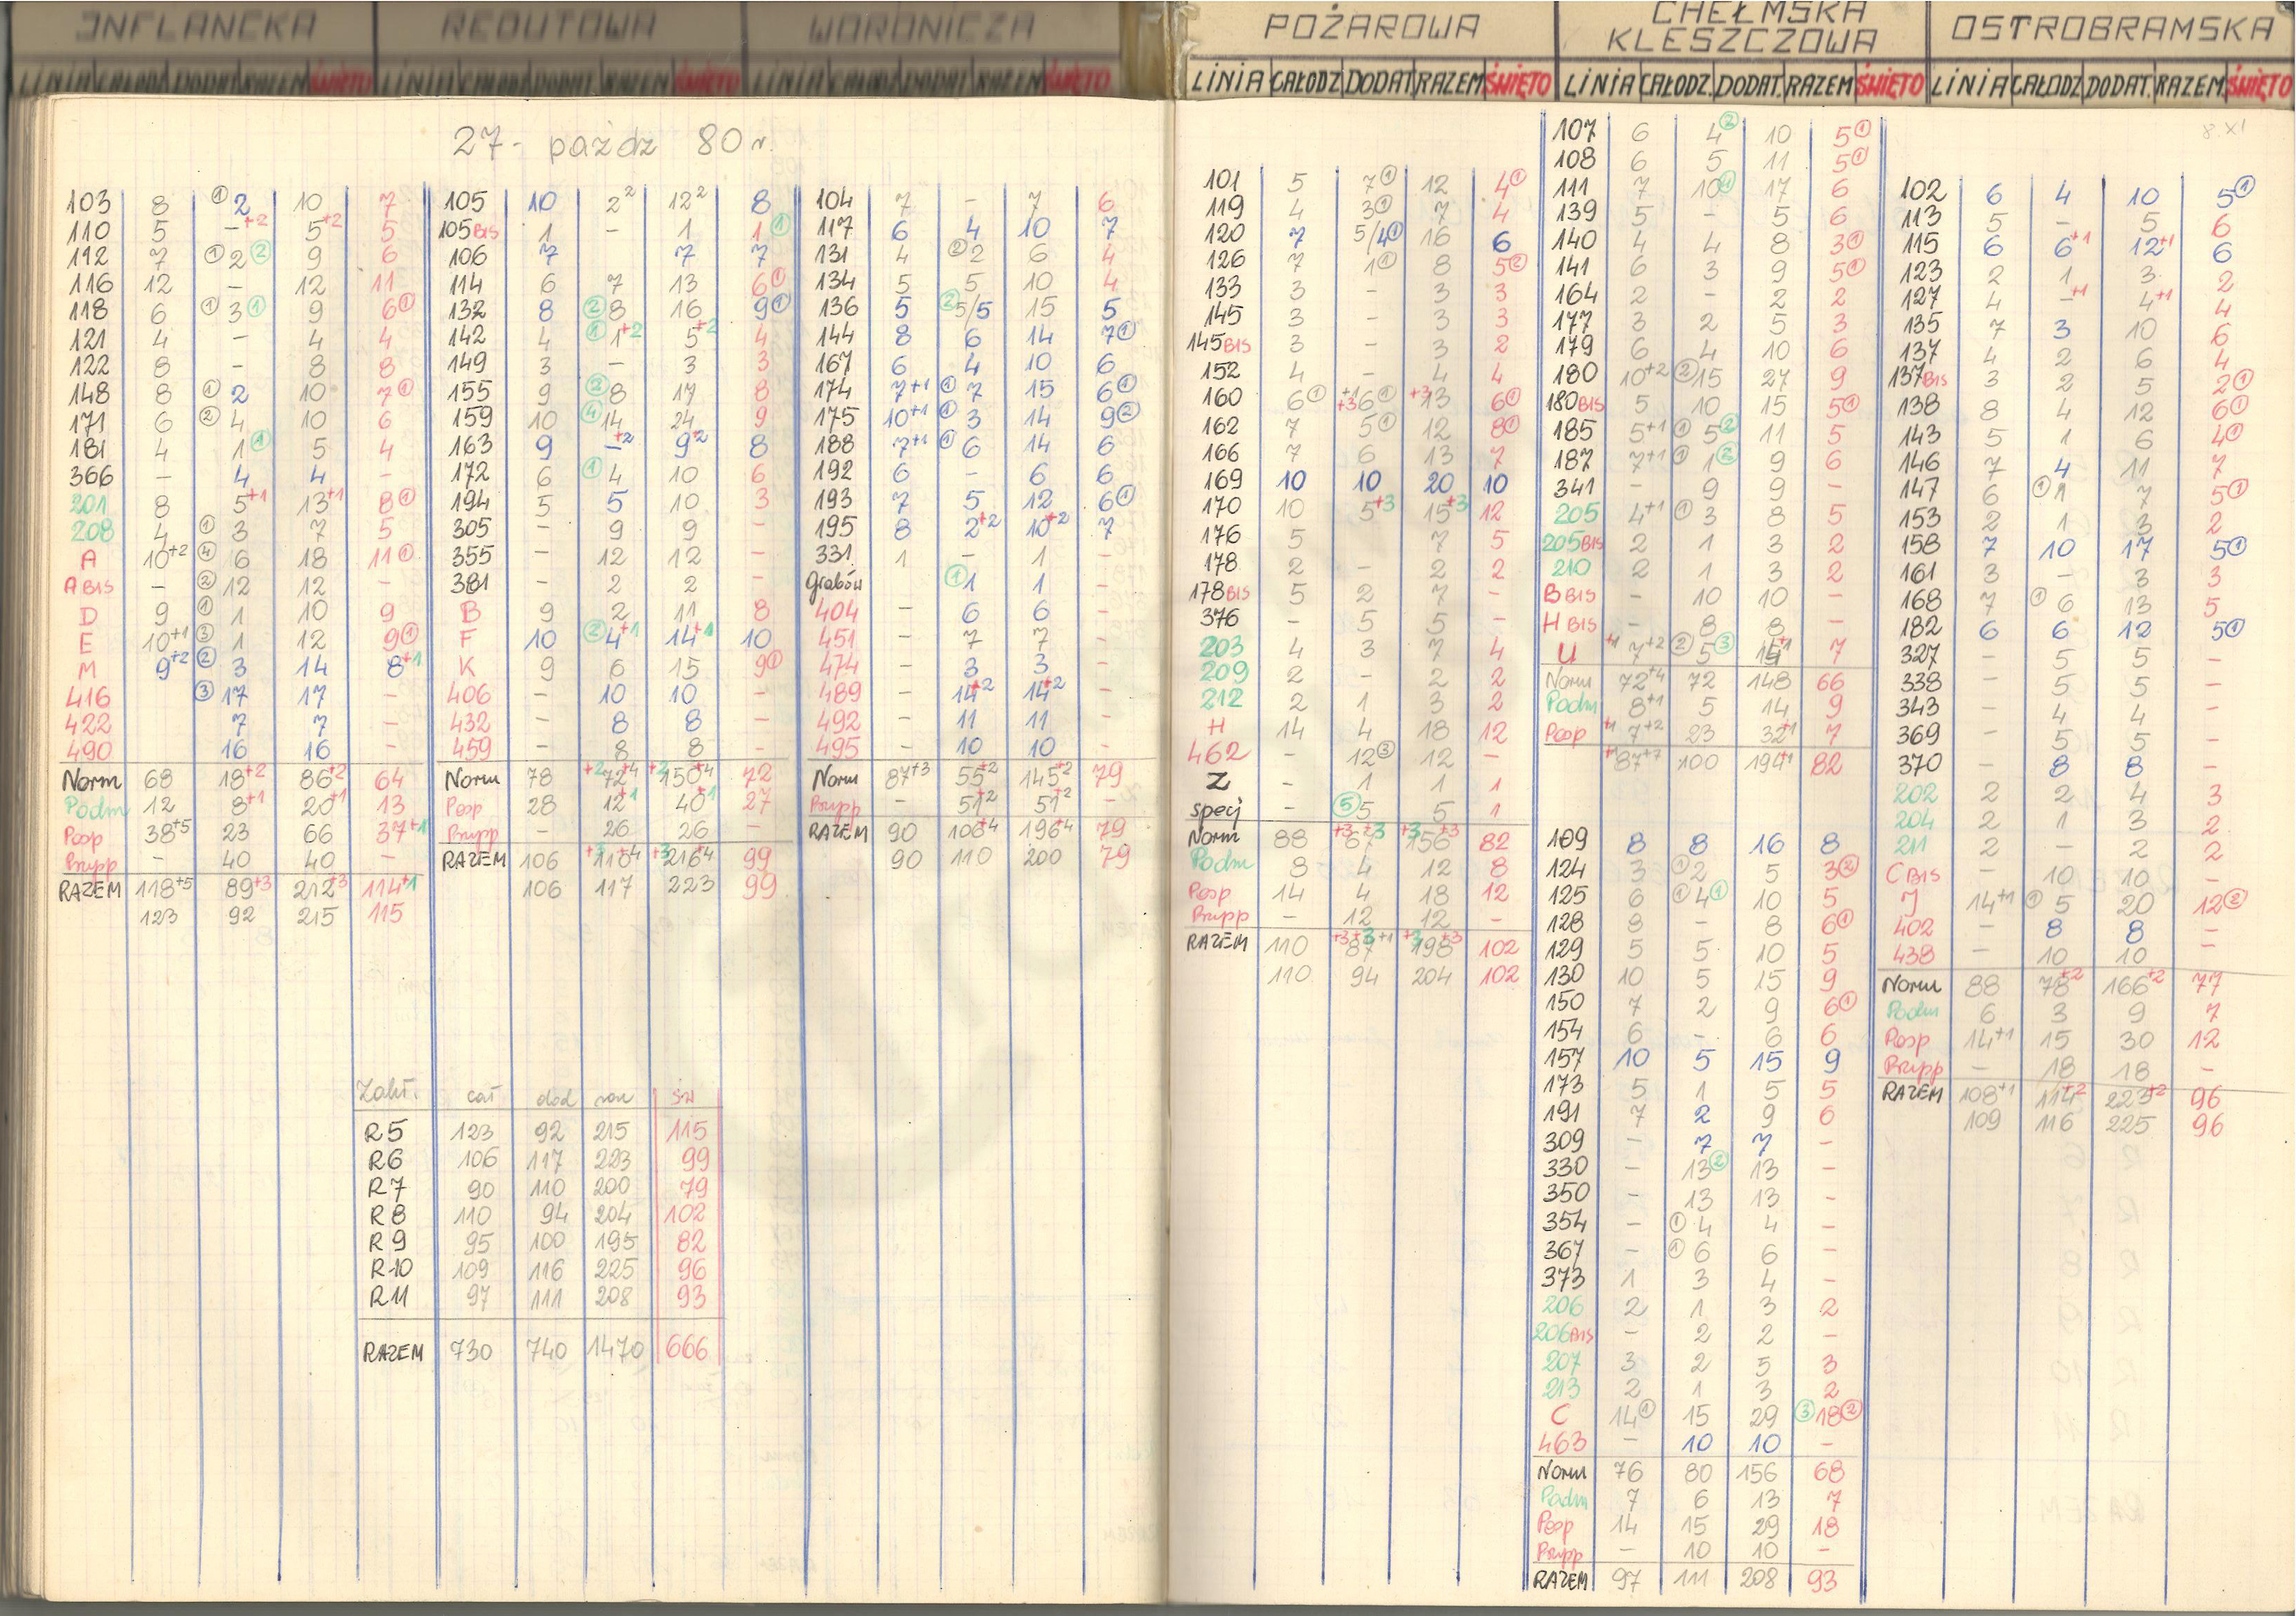 INFLANCKA
LINIA CAŁODZ DODAT RAZEM ŚWIĘTO
REDUTOWA
LINIA CAŁODZ DODAT RAZEM ŚWIĘTO
WORONICZA
LINIA CAŁODZ DODAT RAZEM ŚWIĘTO
27 - paźdz 80 r.
103 8 ① 2 10 7
110 5 -+2 5+2 5
112 7 ① 2 ② 9 6
116 12 - 12 11
118 6 ① 3 ① 9 6①
121 4 - 4 4
122 8 - 8 8
148 8 ① 2 10 7①
171 6 ② 4 10 6
181 4 1① 5 4
366 - 4 4 -
201 8 5+1 13+1 8①
208 4 ① 3 7 5
A 10+2 ④ 6 18 11①
A BIS - ② 12 12 -
D 9 ① 1 10 9
E 10+1 ③ 1 12 9①
M 9+2 ② 3 14 8+1
416 ③ 17 17 -
422 7 7 -
490 16 16 -
Norm 68 18+2 86+2 64
Podm 12 8+1 20+1 13
Posp 38+5 23 66 37+1
Przpp - 40 40 -
RAZEM 118+5 89+3 212+3 114+1
123 92 215 115
105 10 2² 12² 8
105 BIS 1 - 1 1①
106 7 7 7
114 6 7 13 6①
132 8 ② 8 16 9①
142 4 ① 1+2 5+2 4
149 3 - 3 3
155 9 ② 8 17 8
159 10 ④ 14 24 9
163 9 -+2 9+2 8
172 6 ① 4 10 6
194 5 5 10 3
305 - 9 9 -
355 - 12 12 -
381 - 2 2 -
B 9 2 11 8
F 10 ② 4+1 14+1 10
K 9 6 15 9①
406 - 10 10 -
432 - 8 8 -
459 - 8 8 -
Norm 78 +2 72+4 +2 150+4 72
Posp 28 12+1 40+1 27
Przpp - 26 26 -
RAZEM 106 110+4 216+4 99
106 117 223 99
104 7 - 7 6
117 6 4 10 7
131 4 ② 2 6 4
134 5 5 10 4
136 5 ② 5/5 15 5
144 8 6 14 7①
167 6 4 10 6
174 7+1 ① 7 15 6①
175 10+1 ① 3 14 9②
188 7+1 ① 6 14 6
192 6 - 6 6
193 7 5 12 6①
195 8 2+2 10+2 7
331 1 - 1 -
Grabów ① 1 1 -
404 - 6 6 -
451 - 7 7 -
474 - 3 3 -
489 - 14+2 14+2 -
492 - 11 11 -
495 - 10 10 -
Norm 87+3 55+2 145+2 79
Przpp - 51+2 51+2 -
RAZEM 90 106+4 196+4 79
90 110 200 79
Zakł. cał dod raz św
R5 123 92 215 115
R6 106 117 223 99
R7 90 110 200 79
R8 110 94 204 102
R9 95 100 195 82
R10 109 116 225 96
R11 97 111 208 93
RAZEM 730 740 1470 666
POŻAROWA
LINIA CAŁODZ DODAT RAZEM ŚWIĘTO
CHEŁMSKA
KLESZCZOWA
LINIA CAŁODZ. DODAT. RAZEM ŚWIĘTO
OSTROBRAMSKA
LINIA CAŁODZ DODAT. RAZEM. ŚWIĘTO
8.XI
101 5 7① 12 4①
119 4 3① 7 4
120 7 5/4① 16 6
126 7 1① 8 5②
133 3 - 3 3
145 3 - 3 3
145 BIS 3 - 3 2
152 4 - 4 4
160 6① +1 +3 6① +3 13 6①
162 7 5① 12 8①
166 7 6 13 7
169 10 10 20 10
170 10 5+3 15+3 12
176 5 7 5
178 2 - 2 2
178 BIS 5 2 7 -
376 - 5 5 -
203 4 3 7 4
209 2 - 2 2
212 2 1 3 2
H 14 4 18 12
462 - 12③ 12 -
Z - 1 1 1
specj - ⑤ 5 5 1
Norm 88 +3 67+3 +3 156+3 82
Podm 8 4 12 8
Posp 14 4 18 12
Przpp - 12 12 -
RAZEM 110 +3 87+3+1 +3 198+3 102
110 94 204 102
107 6 4② 10 5①
108 6 5 11 5①
111 7 10① 17 6
139 5 - 5 6
140 4 4 8 3①
141 6 3 9 5①
164 2 - 2 2
177 3 2 5 3
179 6 4 10 6
180 10+2 ② 15 27 9
180 BIS 5 10 15 5①
185 5+1 ① 5② 11 5
187 7+1 ① 1② 9 6
341 - 9 9 -
205 4+1 ① 3 8 5
205 BIS 2 1 3 2
210 2 1 3 2
B BIS - 10 10 -
H BIS - 8 8 -
U +1 7+2 ② 5③ 15+1 7
Norm 72+4 72 148 66
Podm 8+1 5 14 9
Posp +1 7+2 23 32+1 7
+1 87+7 100 194+1 82
109 8 8 16 8
124 3 ② 2 5 3②
125 6 ① 4① 10 5
128 8 - 8 6①
129 5 5 10 5
130 10 5 15 9
150 7 2 9 6①
154 6 - 6 6
157 10 5 15 9
173 5 1 5 5
191 7 2 9 6
309 - 7 7 -
330 - 13② 13 -
350 - 13 13 -
354 - ① 4 4 -
367 - ① 6 6 -
373 1 3 4 -
206 2 1 3 2
206 BIS - 2 2 -
207 3 2 5 3
213 2 1 3 2
C 14① 15 29 ③ 18②
463 - 10 10 -
Norm 76 80 156 68
Podm 7 6 13 7
Posp 14 15 29 18
Przpp - 10 10 -
RAZEM 97 111 208 93
102 6 4 10 5①
113 5 - 5 6
115 6 6+1 12+1 6
123 2 1 3 2
127 4 -+1 4+1 4
135 7 3 10 6
137 4 2 6 4
137 BIS 3 2 5 2①
138 8 4 12 6①
143 5 1 6 4①
146 7 4 11 7
147 6 ① 1 7 5①
153 2 1 3 2
158 7 10 17 5①
161 3 - 3 3
168 7 ① 6 13 5
182 6 6 12 5①
327 - 5 5 -
338 - 5 5 -
343 - 4 4 -
369 - 5 5 -
370 - 8 8 -
202 2 2 4 3
204 2 1 3 2
211 2 - 2 2
C BIS - 10 10 -
J 14+1 ① 5 20 12②
402 - 8 8 -
438 - 10 10 -
Norm 88 78+2 166+2 77
Podm 6 3 9 7
Posp 14+1 15 30 12
Przpp - 18 18 -
RAZEM 108+1 114+2 223+2 96
109 116 225 96